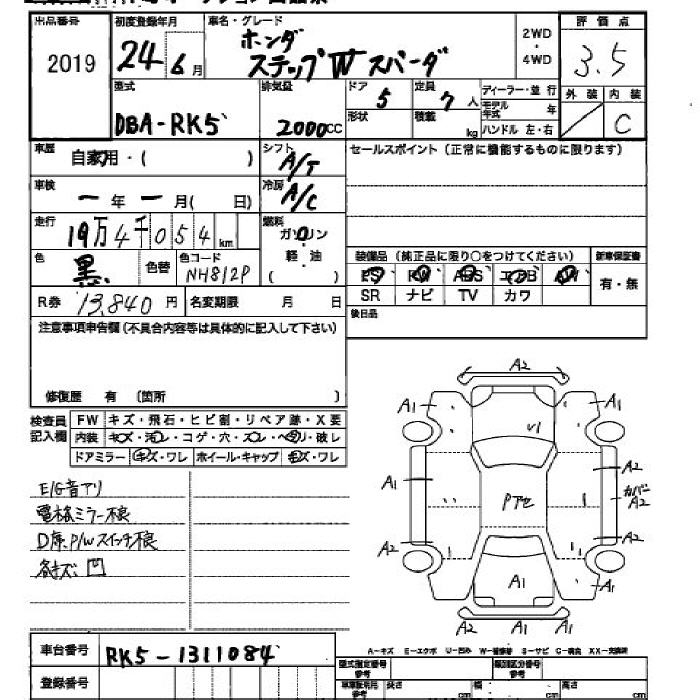 出品番号 初度登録年月 車名・グレード 評価点
2019 24年6月 ホンダ ステップWスパーダ 2WD・4WD 3.5
型式 排気量 ドア 5 定員 7人 ディーラー・並行 外装 内装
DBA-RK5 2000cc 形状 積載 kg モデル年式 年 C
ハンドル 左・右
車歴 自家用・( ) シフト A/T セールスポイント(正常に機能するものに限ります)
車検 ー年ー月( 日) 冷房 A/C
走行 19万4千054km 燃料 ガソリン
色 黒 色替 色コード NH812P 軽・油 ( ) 装備品(純正品に限り○をつけてください) 新車保証書
PS PW ABS エアB AW 有・無
R券 13,840円 名変期限 月 日 SR ナビ TV カワ
注意事項申告欄(不具合内容等は具体的に記入して下さい) 後日品
修復歴 有 (箇所 )
検査員記入欄 FW キズ・飛石・ヒビ割・リペア跡・X要
内装 キズ・汚レ・コゲ・穴・スレ・ヘリ・破レ
ドアミラー キズ・ワレ ホイール・キャップ キズ・ワレ
E/G音アリ
電格ミラー不良
D席P/Wスイッチ不良
各キズ凹
A2
A1 A1
A1 A2
Pアセ カバーA2
A2 A2
A1
A2 A1 A2
A-キズ E-エクボ U-凹み W-補修跡 S-サビ C-腐食 XX-交換済
車台番号 RK5-1311084 型式指定番号 参考 類別区分番号 参考
登録番号 長さ cm 幅 cm 高さ cm